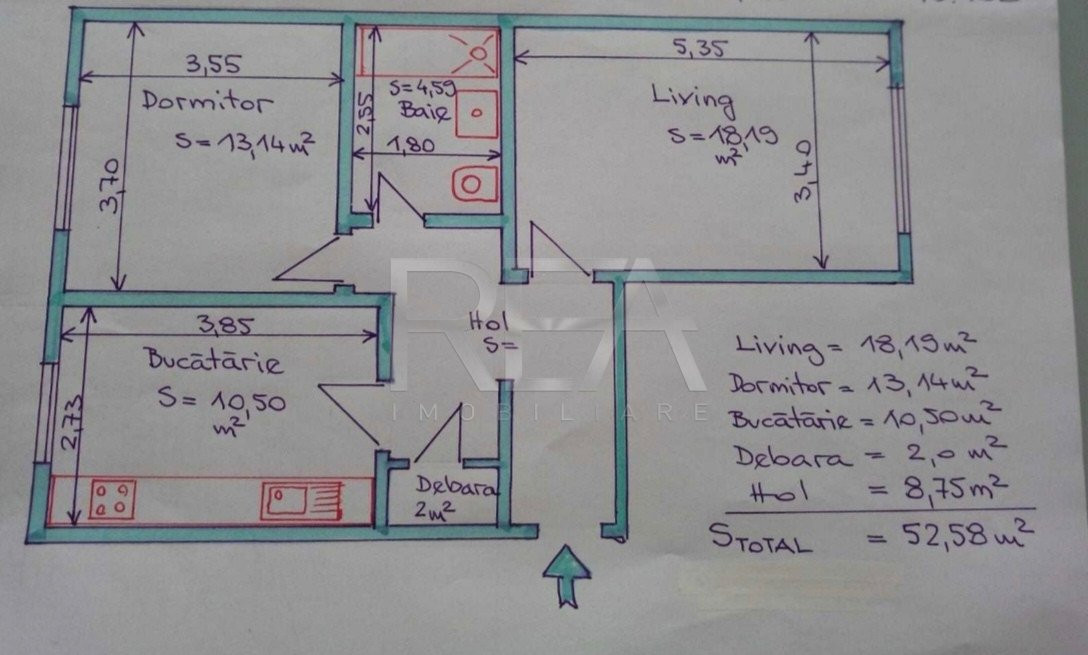 3,55
Dormitor
S = 13,14 m²
3,70
2,55
S = 4,59
Baie
1,80
5,35
Living
S = 18,19
m²
3,40
3,85
Bucătărie
S = 10,50
m²
2,73
Hol
S =
Debara
2 m²
REA
IMOBILIARE
Living = 18,19 m²
Dormitor = 13,14 m²
Bucătărie = 10,50 m²
Debara = 2,0 m²
Hol = 8,75 m²
STOTAL = 52,58 m²